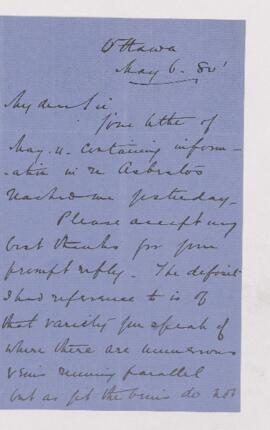 Ottawa
May 6. 80'
My dear Sir
Your letter of
May 4. containing inform-
-ation in re Asbestos
reached me yesterday.
Please accept my
best thanks for your
prompt reply. The deposit
I had reference to is of
that variety you speak of
where there are numerous
veins running parallel
but as yet the veins do not